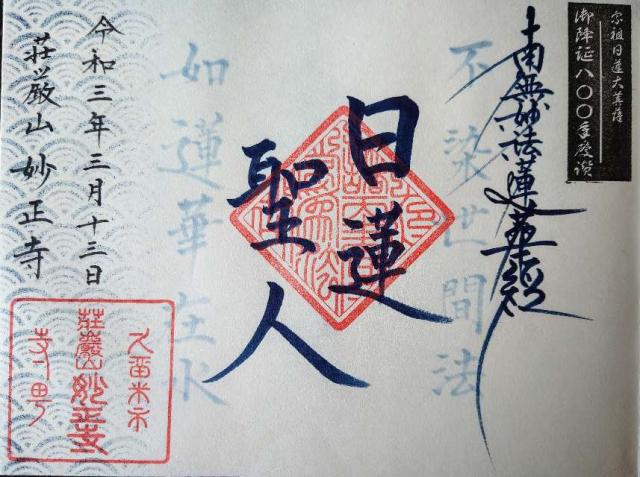 宗祖日蓮大菩薩
御降誕八〇〇年慶讃
南無妙法蓮華経
不染世間法
日蓮
聖人
如蓮華在水
令和三年三月十三日
荘厳山 妙正寺
久留米市
荘嚴山妙正寺
寺町